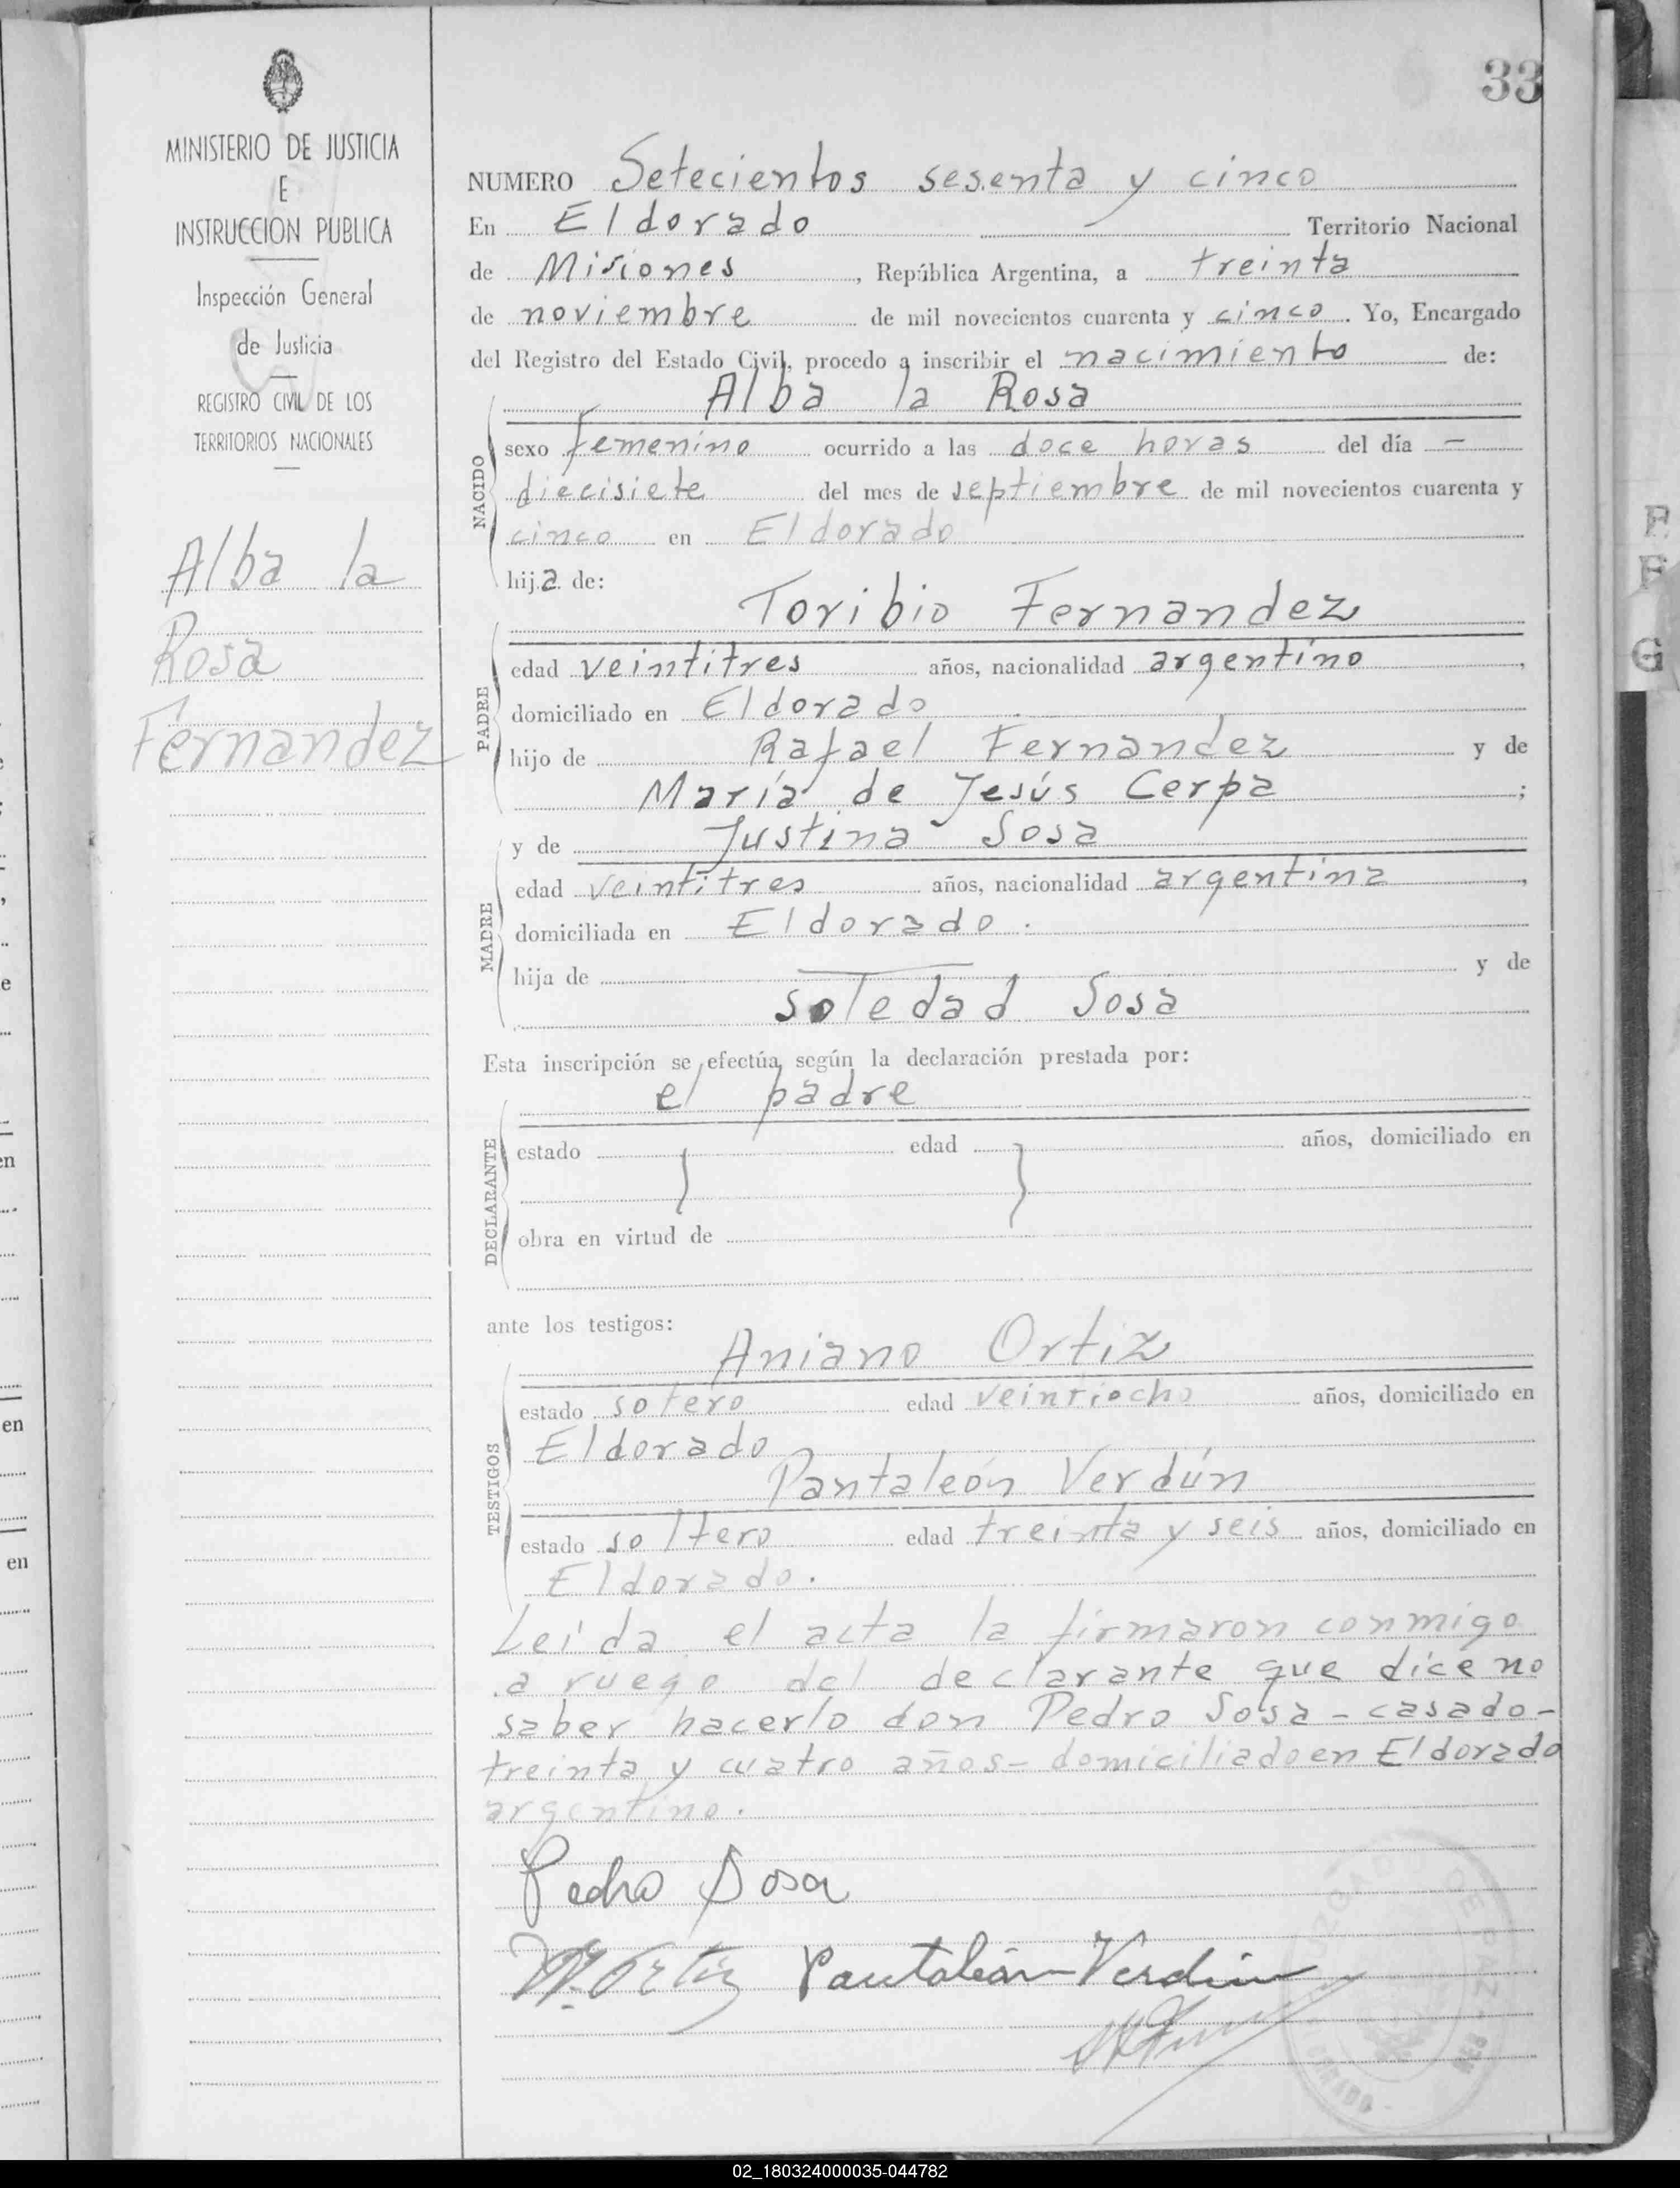 33
MINISTERIO DE JUSTICIA
E
INSTRUCCION PUBLICA
Inspección General
de Justicia
REGISTRO CIVIL DE LOS
TERRITORIOS NACIONALES
Alba la
Rosa
Fernandez
NUMERO Setecientos sesenta y cinco
En Eldorado Territorio Nacional
de Misiones, República Argentina, a treinta
de noviembre de mil novecientos cuarenta y cinco. Yo, Encargado
del Registro del Estado Civil, procedo a inscribir el nacimiento de:
Alba la Rosa
NACIDO
sexo femenino ocurrido a las doce horas del día —
diecisiete del mes de septiembre de mil novecientos cuarenta y
cinco en Eldorado
hija de:
Toribio Fernandez
PADRE
edad veintitres años, nacionalidad argentino,
domiciliado en Eldorado
hijo de Rafael Fernandez y de
María de Jesús Cerpa;
y de Justina Sosa
MADRE
edad veintitres años, nacionalidad argentina,
domiciliada en Eldorado.
hija de — y de
Soledad Sosa
Esta inscripción se efectúa según la declaración prestada por:
el padre
DECLARANTE
estado edad años, domiciliado en
obra en virtud de
ante los testigos:
Aniano Ortiz
TESTIGOS
estado sotero edad veintiocho años, domiciliado en
Eldorado
Pantaleón Verdún
estado soltero edad treinta y seis años, domiciliado en
Eldorado.
Leída el acta la firmaron conmigo
a ruego del declarante que dice no
saber hacerlo don Pedro Sosa - casado -
treinta y cuatro años - domiciliado en Eldorado
argentino.
Pedro Sosa
Ortiz Pantaleón Verdún
DE PAZ
02_180324000035-044782